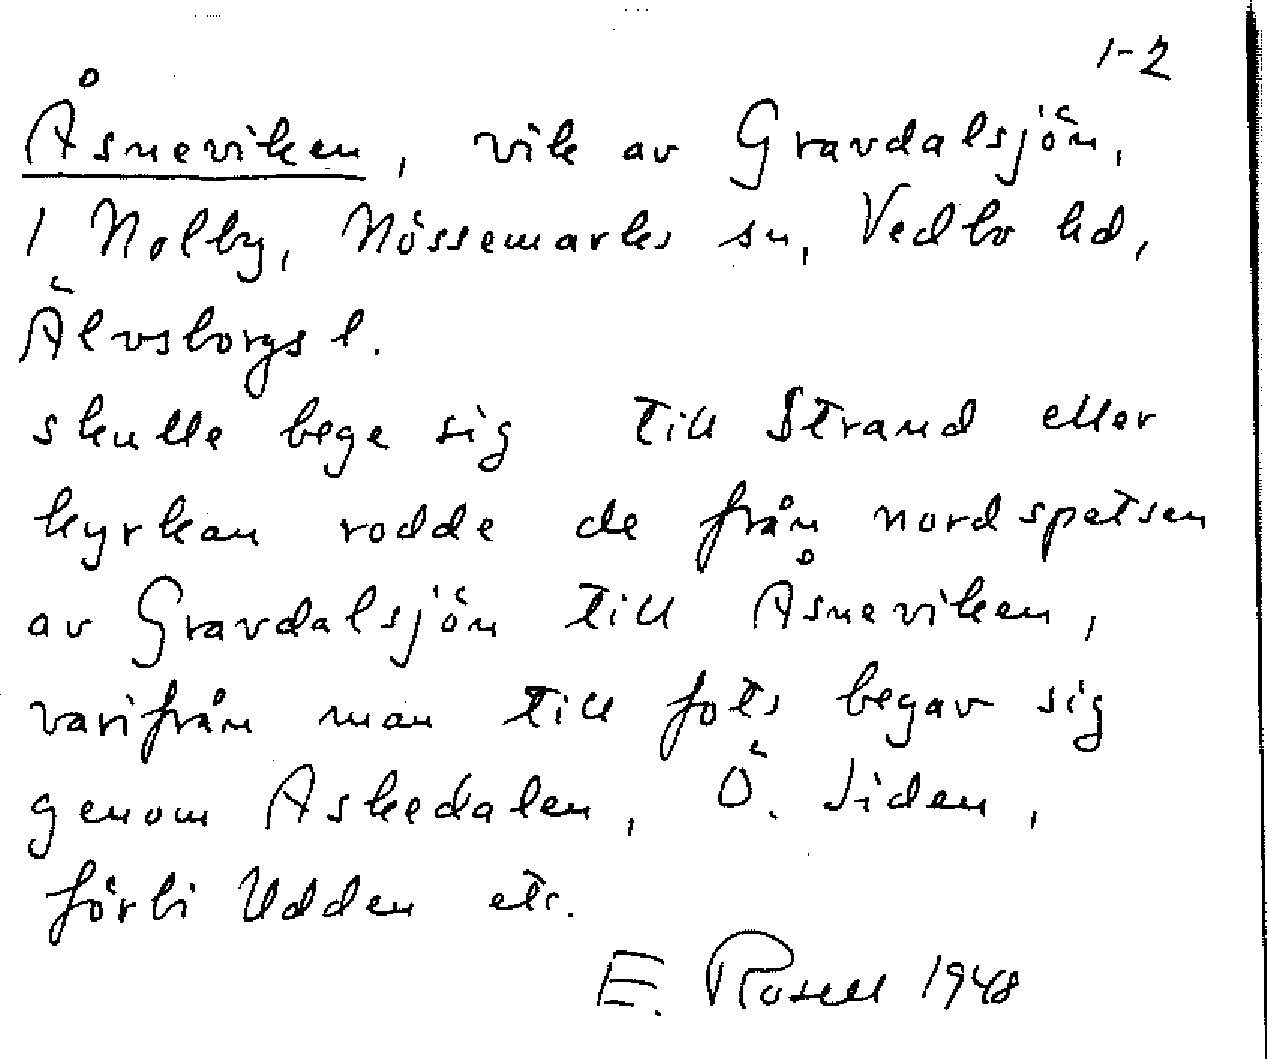 1-2
Åsneviken, vik av Gravdalsjön,
i Nolby, Nössemarks sn, Vedbo hd,
Älvsborgs l.
skulle bege sig till Strand eller
kyrkan rodde de från nordspetsen
av Gravdalsjön till Åsneviken,
varifrån man till fots begav sig
genom Askedalen, Ö. Liden,
förbi Udden etc.
E. Rosell 1948